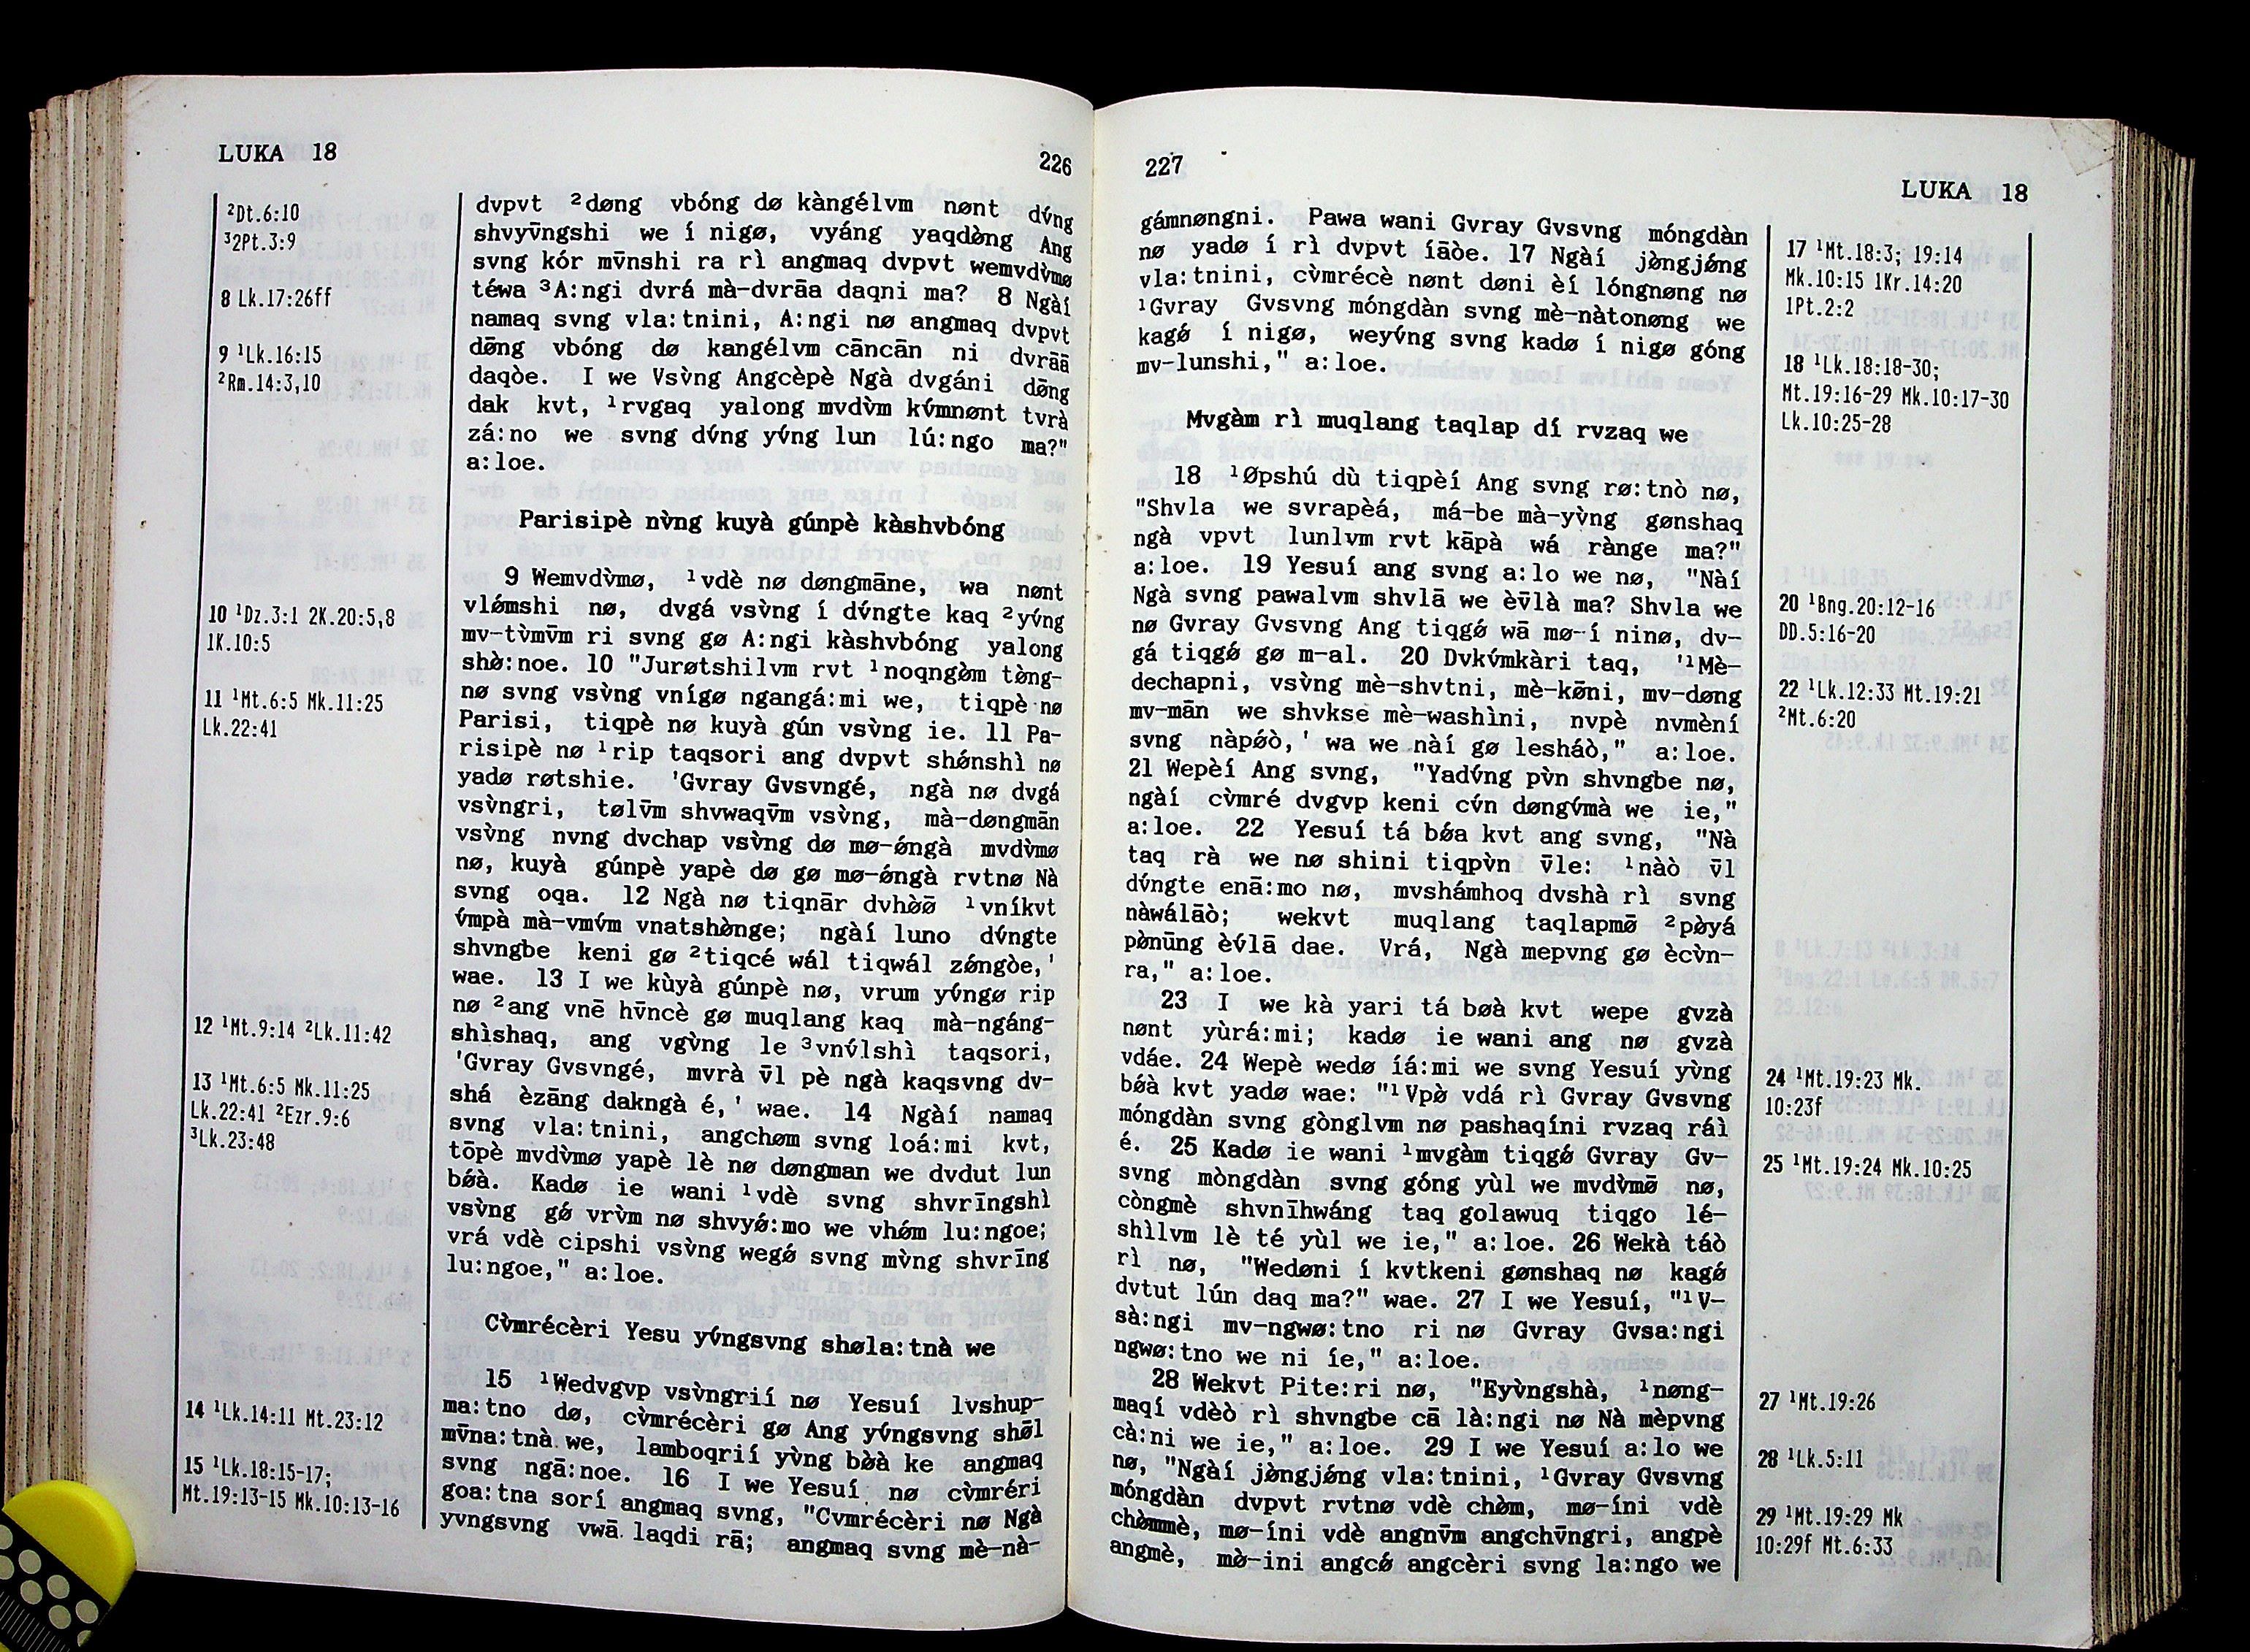 LUKA 18
226
²Dt.6:10
³2Pt.3:9
8 Lk.17:26ff
9 ¹Lk.16:15
²Rm.14:3,10
10 ¹Dz.3:1 2K.20:5,8
1K.10:5
11 ¹Mt.6:5 Mk.11:25
Lk.22:41
12 ¹Mt.9:14 ²Lk.11:42
13 ¹Mt.6:5 Mk.11:25
Lk.22:41 ²Ezr.9:6
³Lk.23:48
14 ¹Lk.14:11 Mt.23:12
15 ¹Lk.18:15-17;
Mt.19:13-15 Mk.10:13-16
dvpvt ²døng vbóng dø kàngélvm nønt dv́ng
shvyv̄ngshi we í nigø, vyáng yaqdø̀ng Ang
svng kór mv̄nshi ra rì angmaq dvpvt wemvdv̀mø
téwa ³A:ngi dvrá mà-dvrāa daqni ma? 8 Ngàí
namaq svng vla:tnini, A:ngi nø angmaq dvpvt
dø̄ng vbóng dø kangélvm cāncān ni dvrāā
daqòe. I we Vsv̀ng Angcèpè Ngà dvgáni dø̄ng
dak kvt, ¹rvgaq yalong mvdv̀m kv́mnønt tvrà
zá:no we svng dv́ng yv́ng lun lú:ngo ma?"
a:loe.
Parisipè nv̀ng kuyà gúnpè kàshvbóng
9 Wemvdv̀mø, ¹vdè nø døngmāne, wa nønt
vlǿmshi nø, dvgá vsv̀ng í dv́ngte kaq ²yv́ng
mv-tv̀mv̄m ri svng gø A:ngi kàshvbóng yalong
shø̀:noe. 10 "Jurøtshilvm rvt ¹noqngø̀m tø̀ng-
nø svng vsv̀ng vnígø ngangá:mi we, tiqpè nø
Parisi, tiqpè nø kuyà gún vsv̀ng ie. 11 Pa-
risipè nø ¹rip taqsori ang dvpvt shǿnshì nø
yadø røtshie. 'Gvray Gvsvngé, ngà nø dvgá
vsv̀ngri, tølv̄m shvwaqv̄m vsv̀ng, mà-døngmān
vsv̀ng nvng dvchap vsv̀ng dø mø-ǿngà mvdv̀mø
nø, kuyà gúnpè yapè dø gø mø-ǿngà rvtnø Nà
svng oqa. 12 Ngà nø tiqnār dvhø̀ø̄ ¹vníkvt
v́mpà mà-vmv́m vnatshø̀nge; ngàí luno dv́ngte
shvngbe keni gø ²tiqcé wál tiqwál zǿngòe,'
wae. 13 I we kùyà gúnpè nø, vrum yv́ngø rip
nø ²ang vnē hv̄ncè gø muqlang kaq mà-ngáng-
shìshaq, ang vgv̀ng le ³vnv́lshì taqsori,
'Gvray Gvsvngé, mvrà v̄l pè ngà kaqsvng dv-
shá èzāng dakngà é,' wae. 14 Ngàí namaq
svng vla:tnini, angchøm svng loá:mi kvt,
tōpè mvdv̀mø yapè lè nø døngman we dvdut lun
bǿà. Kadø ie wani ¹vdè svng shvrīngshì
vsv̀ng gǿ vrv̀m nø shvyǿ:mo we vhǿm lu:ngoe;
vrá vdè cipshi vsv̀ng wegǿ svng mv̀ng shvrīng
lu:ngoe," a:loe.
Cv̀mrécèri Yesu yv́ngsvng shøla:tnà we
15 ¹Wedvgvp vsv̀ngrií nø Yesuí lvshup-
ma:tno dø, cv̀mrécèri gø Ang yv́ngsvng shø̄l
mv̄na:tnà we, lamboqrií yv̀ng bø̀à ke angmaq
svng ngā:noe. 16 I we Yesuí nø cv̀mréri
goa:tna sorí angmaq svng, "Cvmrécèri nø Ngà
yvngsvng vwā laqdi rā; angmaq svng mè-nà-
227
LUKA 18
gámnøngni. Pawa wani Gvray Gvsvng móngdàn
nø yadø í rì dvpvt íāòe. 17 Ngàí jø̀ngjǿng
vla:tnini, cv̀mrécè nønt døni èí lóngnøng nø
¹Gvray Gvsvng móngdàn svng mè-nàtonøng we
kagǿ í nigø, weyv́ng svng kadø í nigø góng
mv-lunshi," a:loe.
Mvgàm rì muqlang taqlap dí rvzaq we
18 ¹Øpshú dù tiqpèí Ang svng rø:tnò nø,
"Shvla we svrapèá, má-be mà-yv̀ng gønshaq
ngà vpvt lunlvm rvt kāpà wá rànge ma?"
a:loe. 19 Yesuí ang svng a:lo we nø, "Nàí
Ngà svng pawalvm shvlā we èv̄là ma? Shvla we
nø Gvray Gvsvng Ang tiqgǿ wā mø-í ninø, dv-
gá tiqgǿ gø m-al. 20 Dvkv́mkàri taq, '¹Mè-
dechapni, vsv̀ng mè-shvtni, mè-kø̄ni, mv-døng
mv-mān we shvkse mè-washìni, nvpè nvmèní
svng nàpǿò,' wa we nàí gø lesháò," a:loe.
21 Wepèí Ang svng, "Yadv́ng pv̀n shvngbe nø,
ngàí cv̀mré dvgvp keni cv́n døngv́mà we ie,"
a:loe. 22 Yesuí tá bǿa kvt ang svng, "Nà
taq rà we nø shini tiqpv̀n v̄le: ¹nàò v̄l
dv́ngte enā:mo nø, mvshámhoq dvshà rì svng
nàwáláò; wekvt muqlang taqlapmø̄ ²pø̀yá
pø̀nūng èv́lā dae. Vrá, Ngà mepvng gø ècv̀n-
ra," a:loe.
23 I we kà yari tá bøà kvt wepe gvzà
nønt yùrá:mi; kadø ie wani ang nø gvzà
vdáe. 24 Wepè wedø íá:mi we svng Yesuí yv̀ng
bǿà kvt yadø wae: "¹Vpø̀ vdá rì Gvray Gvsvng
móngdàn svng gònglvm nø pashaqíni rvzaq ráì
é. 25 Kadø ie wani ¹mvgàm tiqgǿ Gvray Gv-
svng mòngdàn svng góng yùl we mvdv̀mø̄ nø,
còngmè shvnīhwáng taq golawuq tiqgo lé-
shìlvm lè té yùl we ie," a:loe. 26 Wekà táò
rì nø, "Wedøni í kvtkeni gønshaq nø kagǿ
dvtut lún daq ma?" wae. 27 I we Yesuí, "¹V-
sà:ngi mv-ngwø:tno ri nø Gvray Gvsa:ngi
ngwø:tno we ni íe," a:loe.
28 Wekvt Pite:ri nø, "Eyv̀ngshà, ¹nøng-
maqí vdèò rì shvngbe cā là:ngi nø Nà mèpvng
cà:ni we ie," a:loe. 29 I we Yesuí a:lo we
nø, "Ngàí jø̀ngjǿng vla:tnini, ¹Gvray Gvsvng
móngdàn dvpvt rvtnø vdè chø̀m, mø-íni vdè
chø̀mmè, mø-íni vdè angnv̄m angchv̄ngri, angpè
angmè, mø̀-ini angcǿ angcèri svng la:ngo we
17 ¹Mt.18:3; 19:14
Mk.10:15 1Kr.14:20
1Pt.2:2
18 ¹Lk.18:18-30;
Mt.19:16-29 Mk.10:17-30
Lk.10:25-28
20 ¹Bng.20:12-16
DD.5:16-20
22 ¹Lk.12:33 Mt.19:21
²Mt.6:20
24 ¹Mt.19:23 Mk.
10:23f
25 ¹Mt.19:24 Mk.10:25
27 ¹Mt.19:26
28 ¹Lk.5:11
29 ¹Mt.19:29 Mk
10:29f Mt.6:33